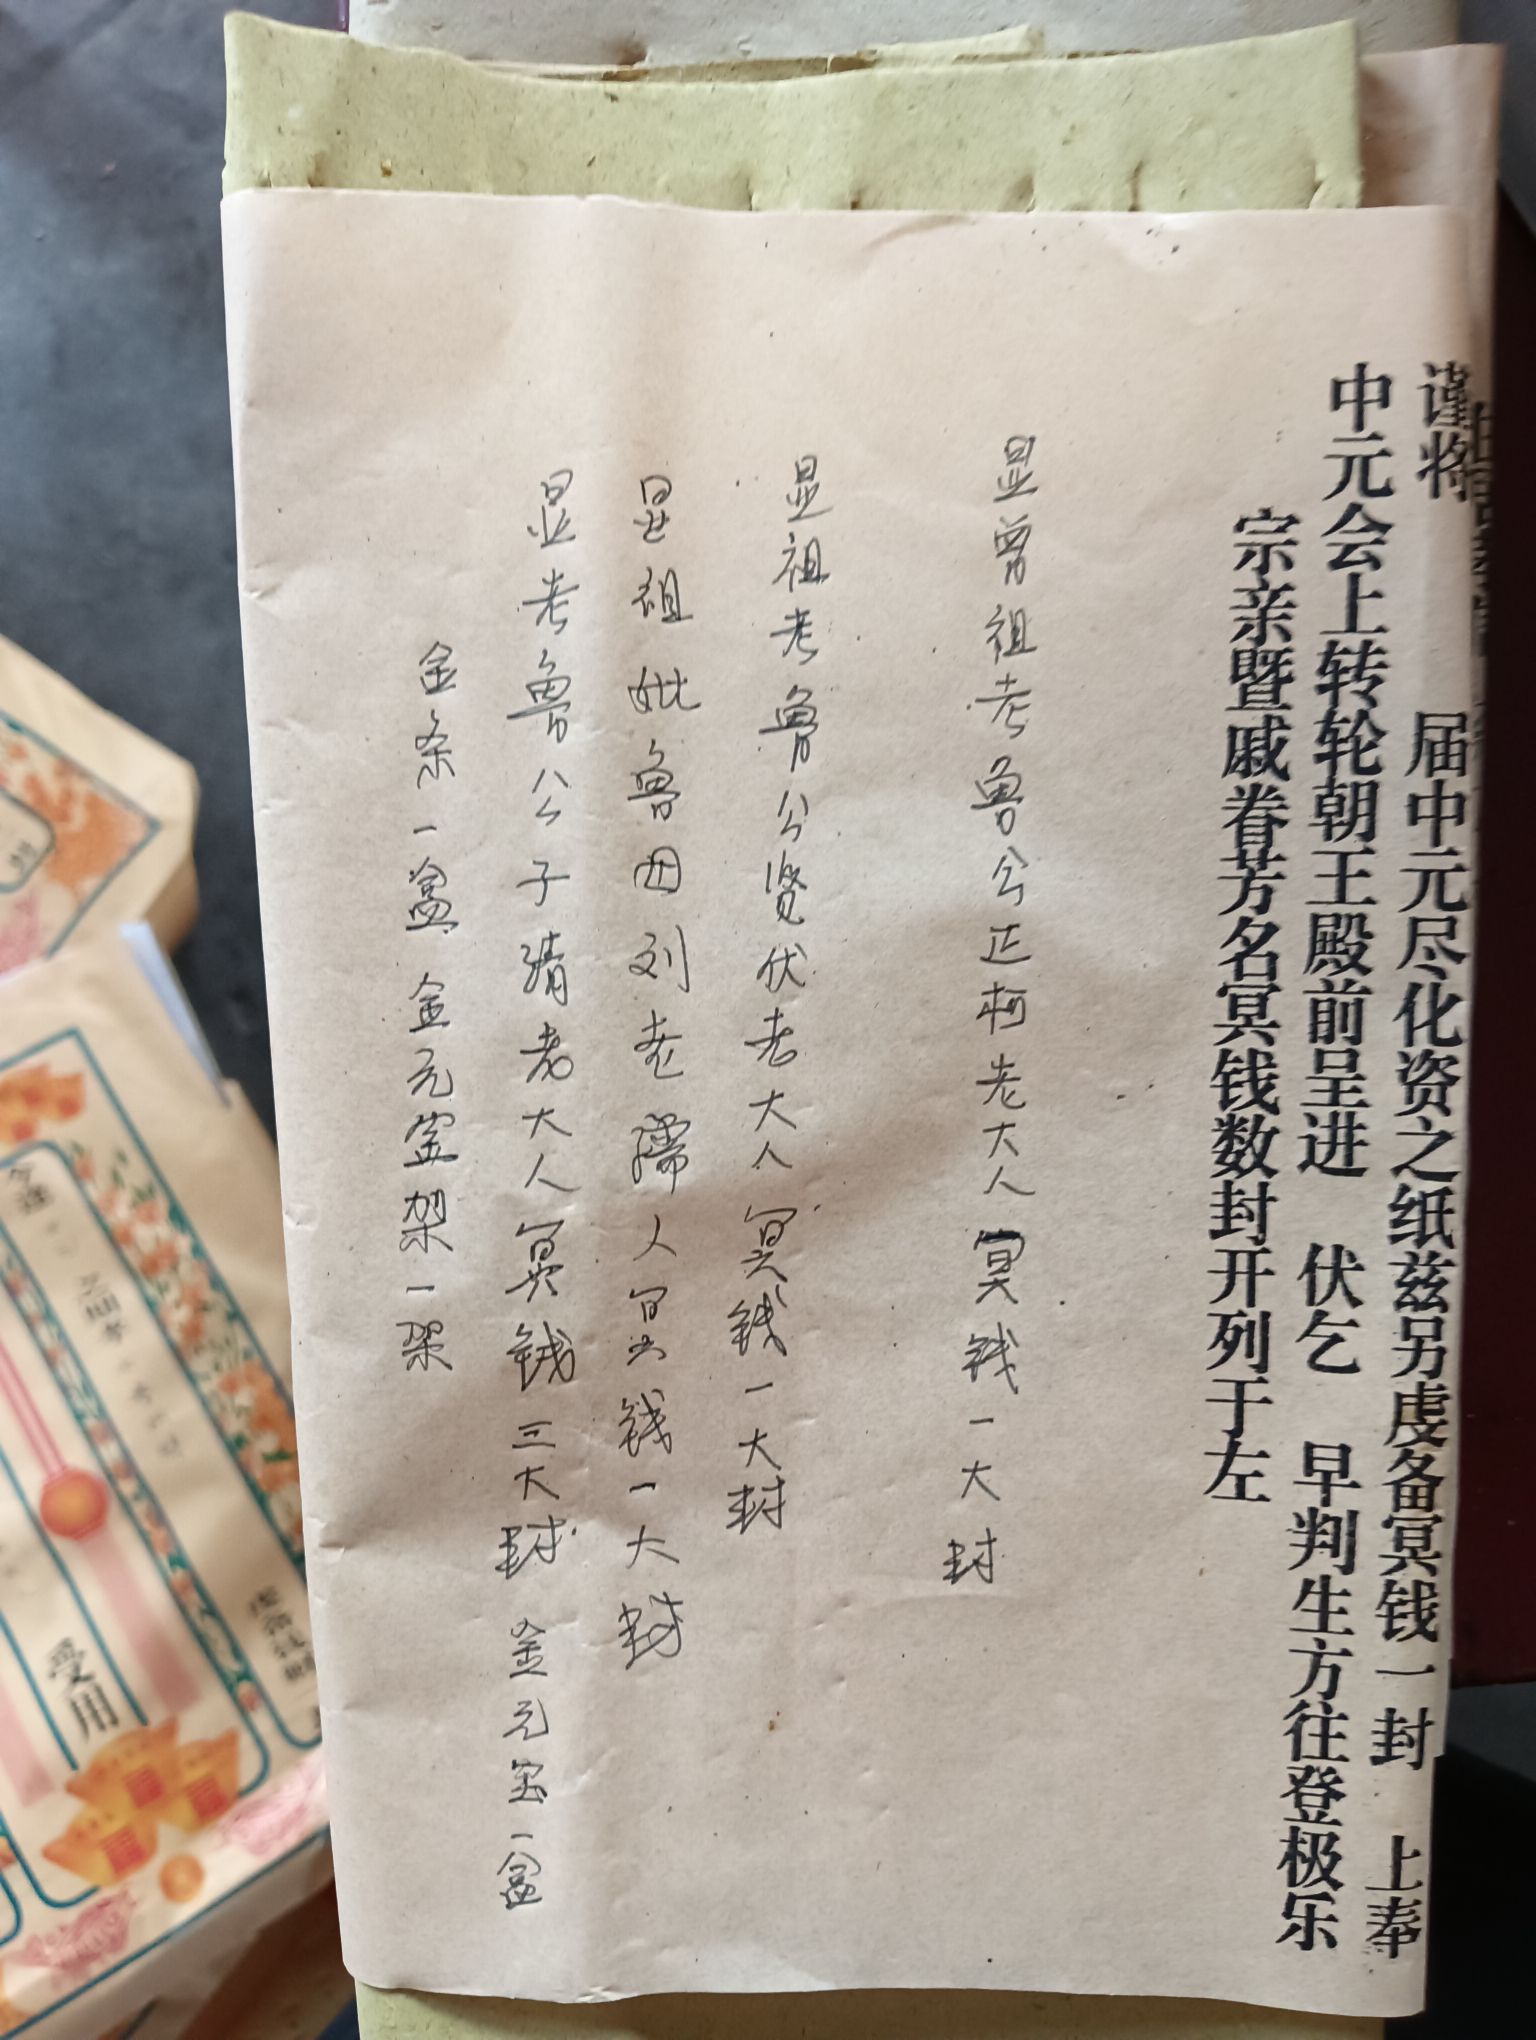 谨将 届中元尽化资之纸兹另虔备冥钱一封 上奉
中元会上转轮朝王殿前呈进 伏乞 早判生方往登极乐
宗亲暨戚眷芳名冥钱数封开列于左
显曾祖考鲁公正柯老大人冥钱一大封
显祖考鲁公贤伏老大人冥钱一大封
显祖妣鲁因刘老孺人冥钱一大封
显考鲁公子清老大人冥钱三大封 金元宝一盒
金条一盒 金元宝架一架
受用